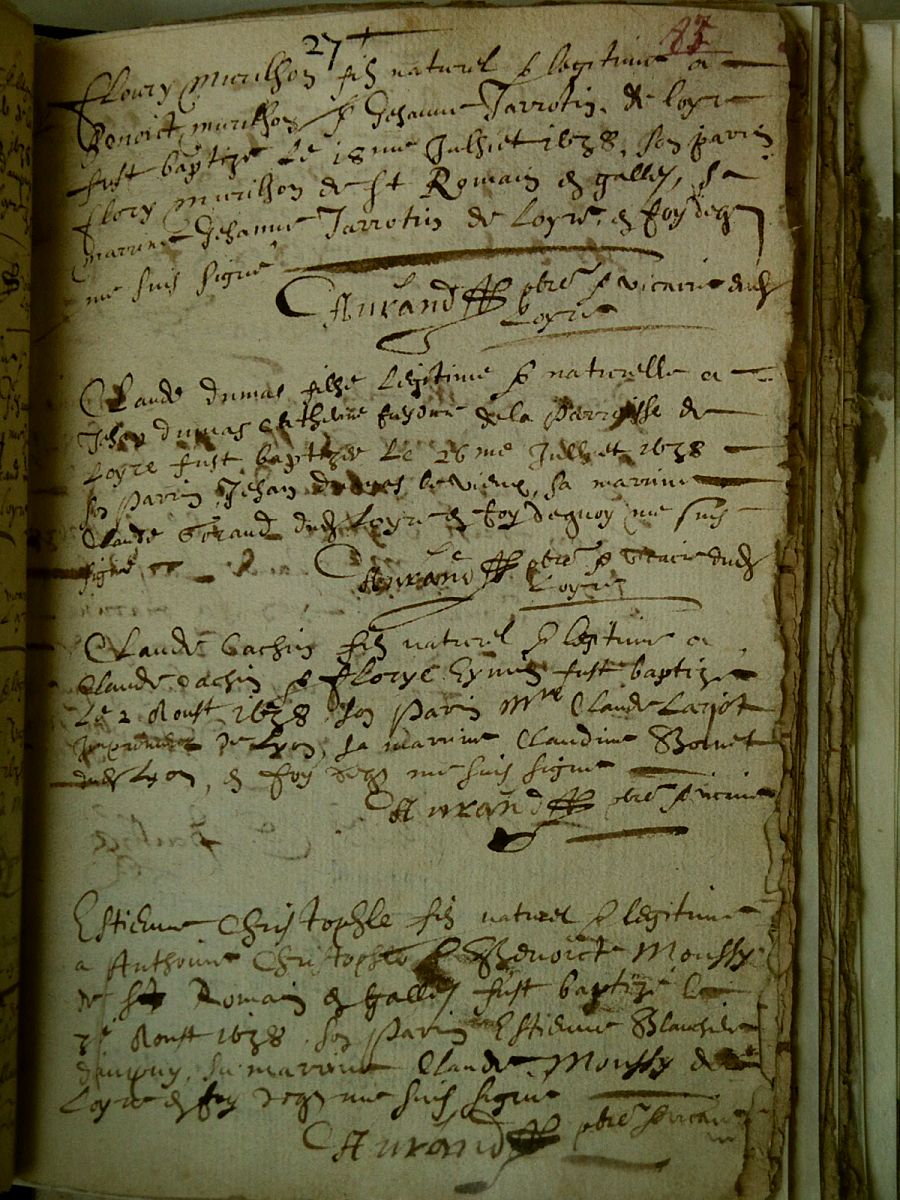 27
Floury murilhon filz naturel & legitime a
Benoict murilhon & Jehanne Tarrotin, de loyre
fust baptize le 18me Julhiet 1638, son parin
flory murilhon de st Romain en galley, sa
marrine Jehanne Tarrotin de Loyre, en foy de
me suis signé
Aurand pbre & vicaire dud
Loyre
Claude dumas fille legitime & naturelle a
Jehan dumas Catherine de la parroisse de
Loyre fust baptizee le 26me Julhiet 1638
son parin Jehan le vieux, sa marrine
Claude dud Loyre en foy dequoy me suis
signé
Aurand pbre & vicaire dud
Loyre
Claude bachin filz naturel & legitime a
Claude bachin & florye Eymin fust baptize
Le 2 Aoust 1638 son parin Mre Claude Larjot
de Lyon, sa marrine Claudine Bonet
dud Lyon, en foy de me suis signé
Aurand pbre & vicaire
Estienne Christophle filz naturel & legitime
a Anthoine Christophle & Benoicte Moussy
de st Romain en galley fust baptizé le
Aoust 1638 son parin Estienne
sa marrine Claude Moussy de
Loyre en foy de me suis signé
Aurand pbre & vicaire